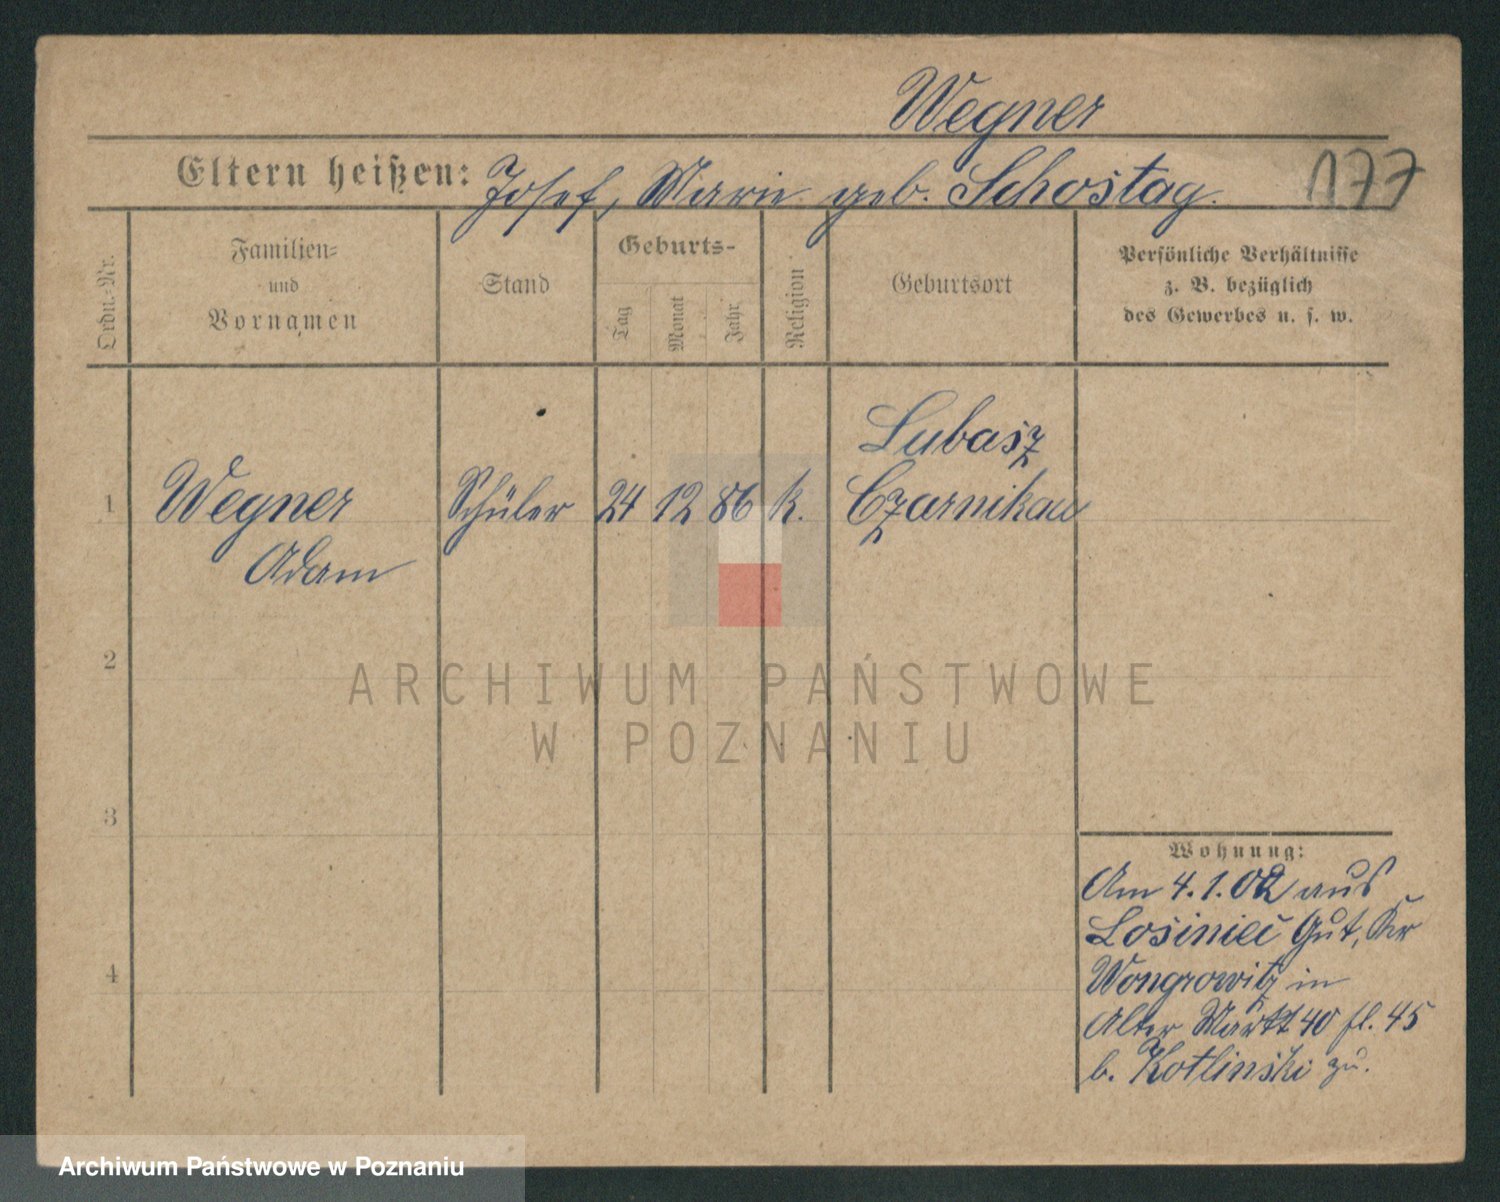 Wegner
Eltern heißen: Josef, Marie geb. Schostag.
177
Ordn.-Nr.
Familien-
und
Vornamen
Stand
Geburts-
Tag
Monat
Jahr
Religion
Geburtsort
Persönliche Verhältnisse
z. B. bezüglich
des Gewerbes u. s. w.
Lubasz
1 Wegner Schüler 24 12 86 k. Czarnikau
Adam
2
ARCHIWUM PAŃSTWOWE
W POZNANIU
3
Wohnung:
Am 4.1.02 aus
Losiniec Gut, Kr
4
Wongrowitz in
Alter Markt 40 fl. 45
b. Kotlinski zu.
Archiwum Państwowe w Poznaniu